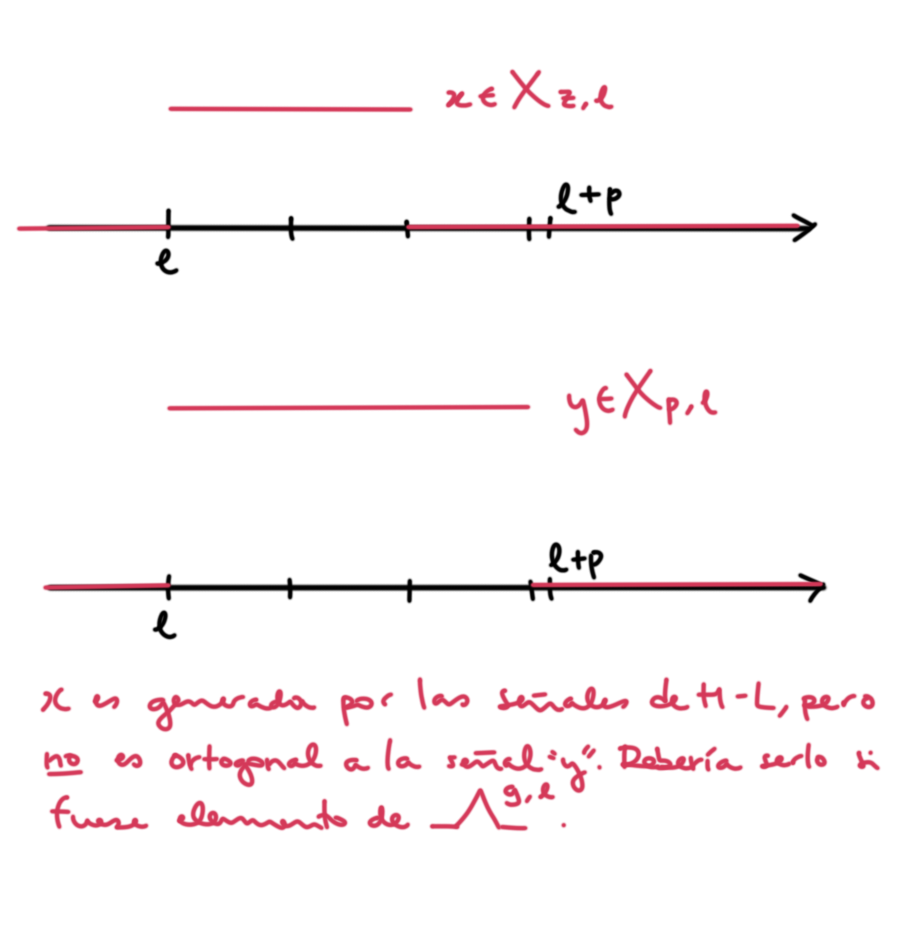 x ∈ X z, l
l+p
l
y ∈ X p, l
l+p
l
x es generada por las señales de H-L, pero
no es ortogonal a la señal "y". Debería serlo si
fuese elemento de Λ g, l .